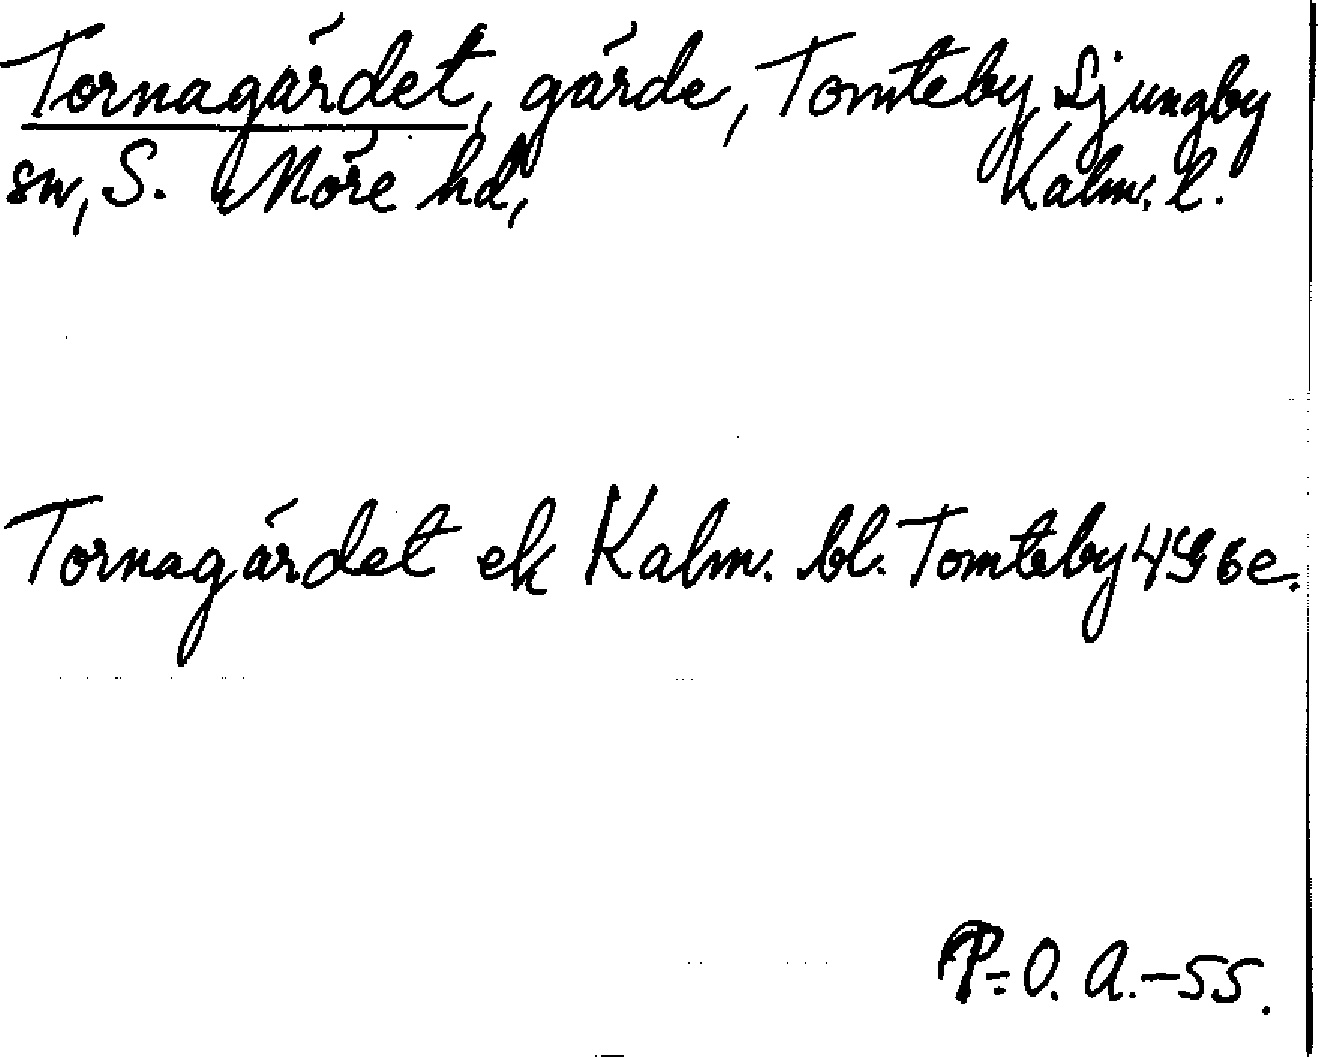 Tornagärdet, gärde, Tomteby, Ljungby
sn, S. Möre hd, Kalm. l.
Tornagärdet ek Kalm. bl. Tomteby 4G6e.
P-O. A.-55.